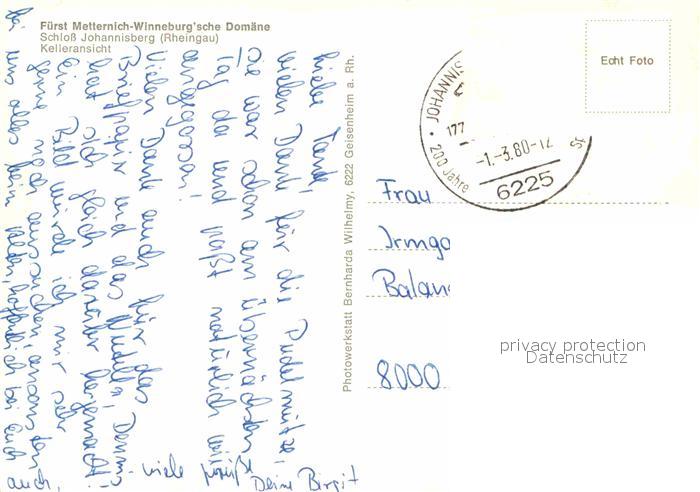 Fürst Metternich-Winneburg'sche Domäne
Schloß Johannisberg (Rheingau)
Kelleransicht
Echt Foto
JOHANNIS
177
-1.-3.80-12
200 Jahre
6225
Photowerkstatt Bernharda Wilhelmy, 6222 Geisenheim a. Rh.
Frau
Irmga
Balan
8000
privacy protection
Datenschutz
Liebe Tante!
vielen Dank für die Pudelmütze,
sie war schon am übernächsten
Tag da und paßt natürlich wie
angegossen!
Vielen Dank auch für das
Briefpapier und das
hat sich gleich darüber hergemacht!
Ein Bild würde ich mir sehr
gerne noch aussuchen, ansonsten
uns allen fein, hoffentlich bei Euch
auch,
- viele Grüße
Deine Birgit